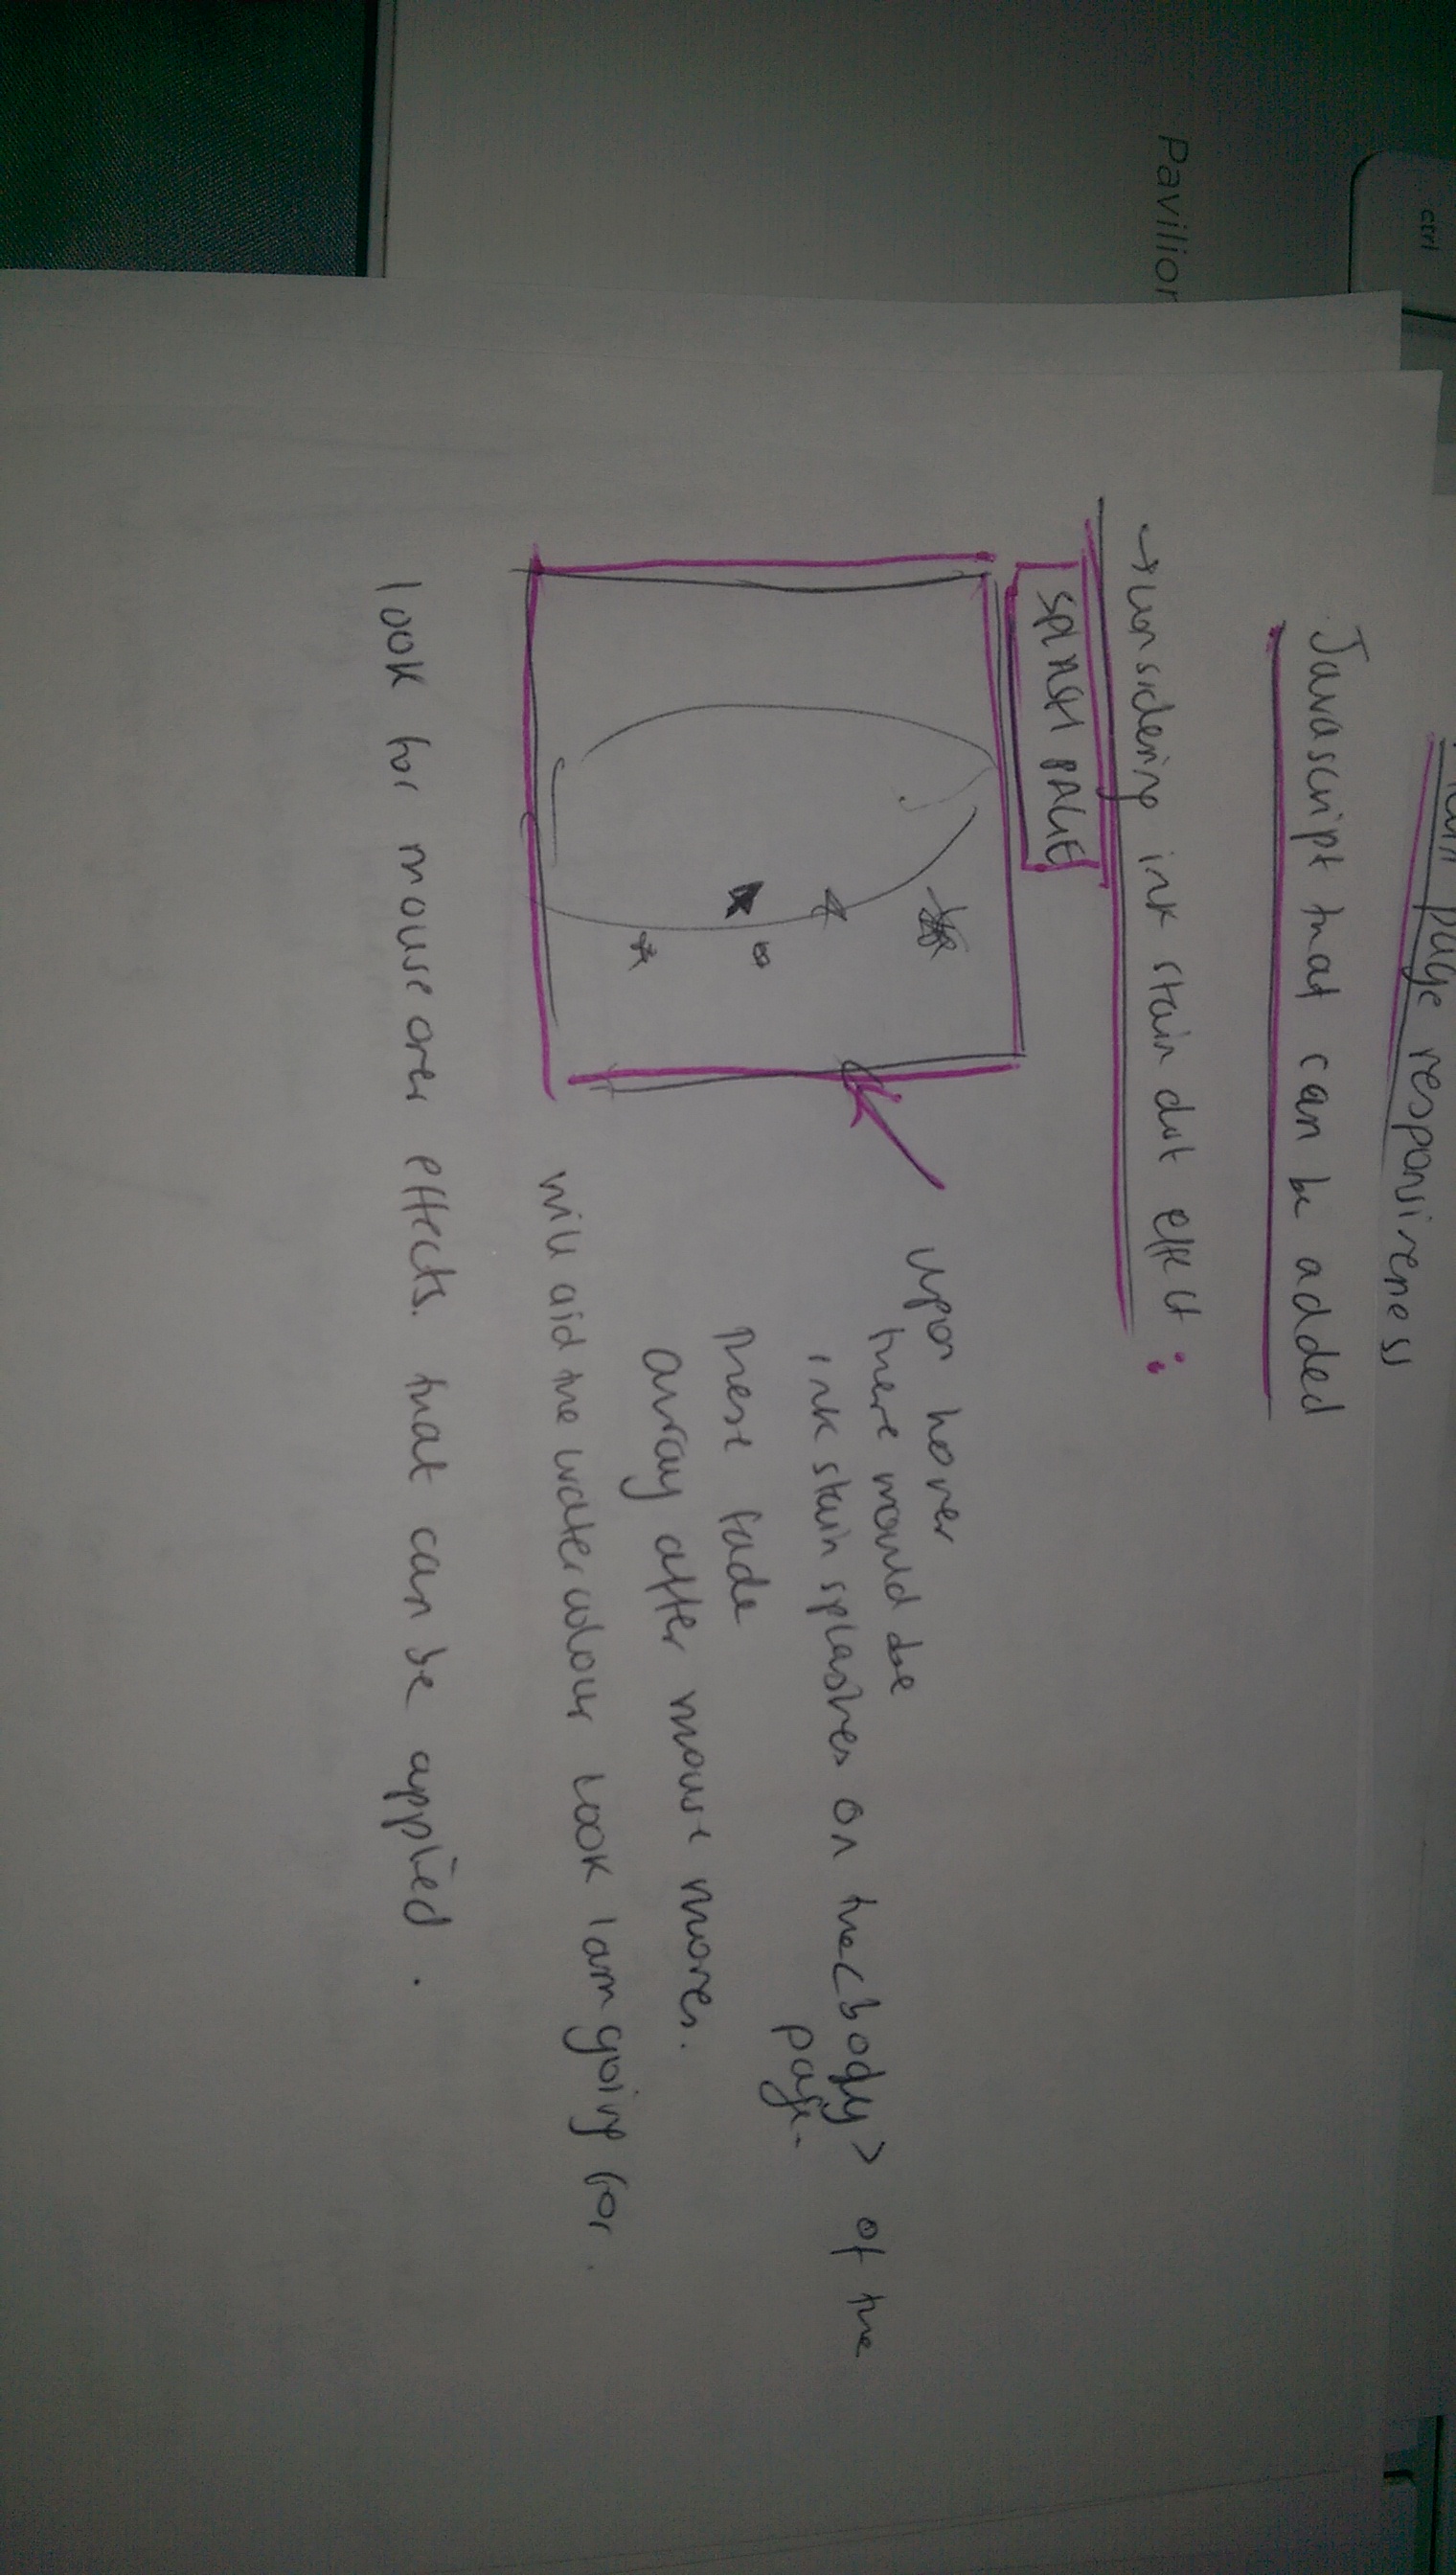 Pavilion
ctrl
page responsiveness
Javascript that can be added
→ considering ink stain dot effect :
SPLASH PAGE
upon hover
there would be
ink stain splashes on the <body> of the
page.
These fade
away after mouse moves.
will aid the watercolour look I am going for.
look for mouse over effects. that can be applied.